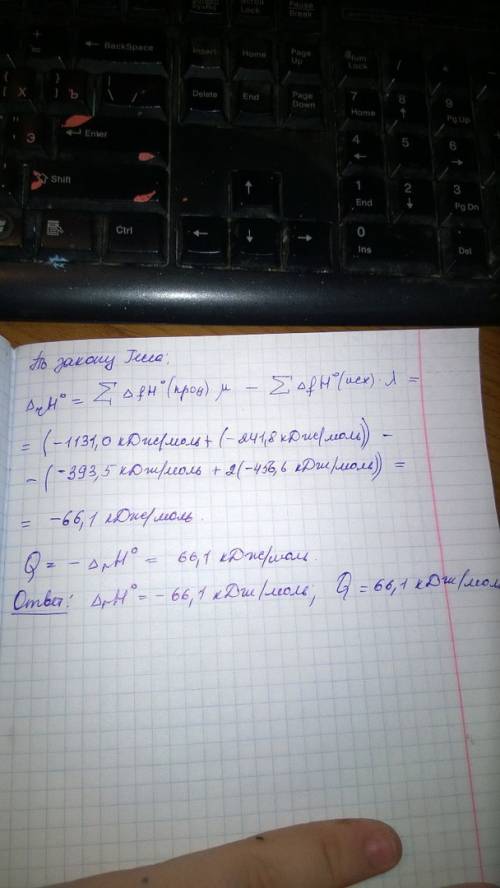 Scroll Lock
Pause Break
+ =
← BackSpace
Insert
Home
Page Up
Num Lock
/
{ [ Х
} ] Ъ
| \ /
Delete
End
Page Down
7 Home
8 ↑
9 Pg Up
" ' Э
← Enter
4 ←
5
6 →
Shift
↑
1 End
2 ↓
3 Pg Dn
Ctrl
←
↓
→
0 Ins
Del
По закону Гесса:
ΔrH° = ∑ ΔfH°(прод) μ − ∑ ΔfH°(исх)·λ =
= (−1131,0 кДж/моль + (−241,8 кДж/моль)) −
− (−393,5 кДж/моль + 2(−456,6 кДж/моль)) =
= −66,1 кДж/моль.
Q = − ΔrH° = 66,1 кДж/моль.
Ответ: ΔrH° = − 66,1 кДж/моль; Q = 66,1 кДж/моль